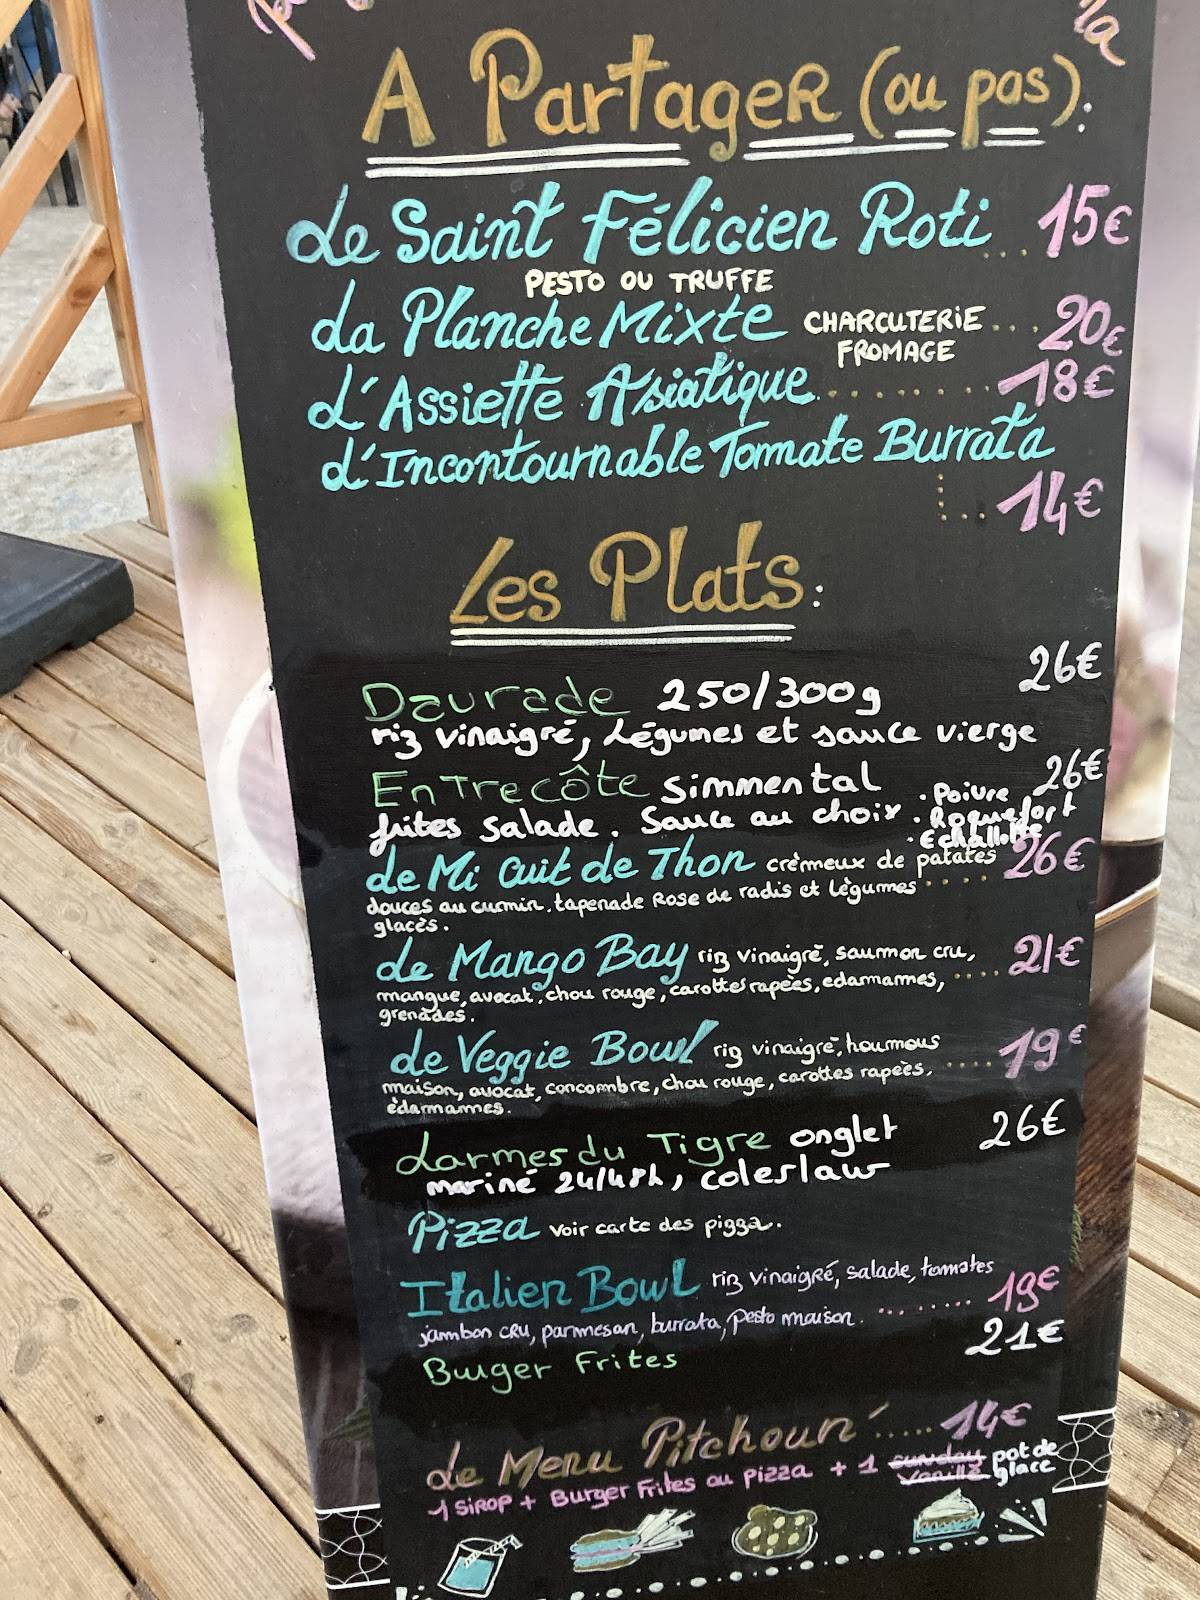 A Partager (ou pas) :
Le Saint Félicien Roti ... 15€
PESTO OU TRUFFE
La Planche Mixte CHARCUTERIE ... 20€
FROMAGE
L'Assiette Asiatique ......... 18€
L'Incontournable Tomate Burrata
... 14€
Les Plats :
26€
Daurade 250/300g
riz vinaigré, légumes et sauce vierge
Entrecôte simmental 26€
frites salade. Sauce au choix . Poivre
. Roquefort
. Echallotte
Le Mi Cuit de Thon crèmeux de patates 26€
douces au cumin. tapenade Rose de radis et lègumes .....
glacès.
Le Mango Bay riz vinaigrè, saumon cru, .... 21€
mangue, avocat, chou rouge, carottes rapèes, edamames,
grenades.
Le Veggie Bowl riz vinaigrè, houmous .... 19€
maison, avocat, concombre, chou rouge, carottes rapèes,
èdamames.
Larmes du Tigre onglet 26€
mariné 24/48h, coleslaw
Pizza voir carte des pizza.
Italien Bowl riz vinaigré, salade, tomates
jambon cru, parmesan, burrata, pesto maison. ......... 19€
21€
Burger Frites
Le Menu Pitchoun' ..... 14€
1 SIROP + Burger Frites au pizza + 1 sunday vanille pot de
glace